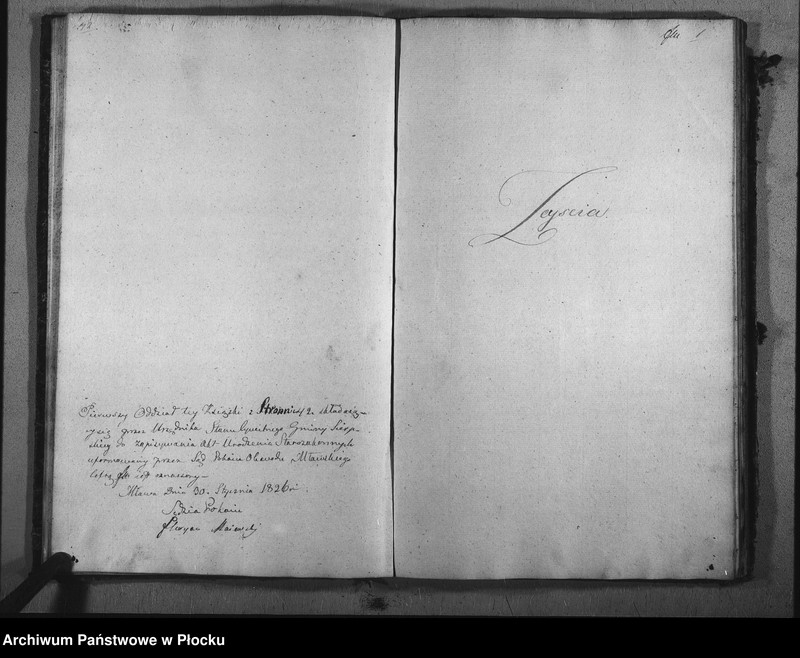 Pierwszy Oddział tey Xsiążki z Stronnic 42 składaią-
cy się przez Urzędnika Stanu Cywilnego Gminy Sierp-
skiey do zapisywania Akt Urodzenia Starozakonnych
uformowany przez Sąd Pokoiu Obwodu Mławskiego
zanaszony
Mława Dnia 30. Stycznia 1826 r.
Sędzia Pokoiu
Floryan Maiewski
1
Zeyscia
Archiwum Państwowe w Płocku